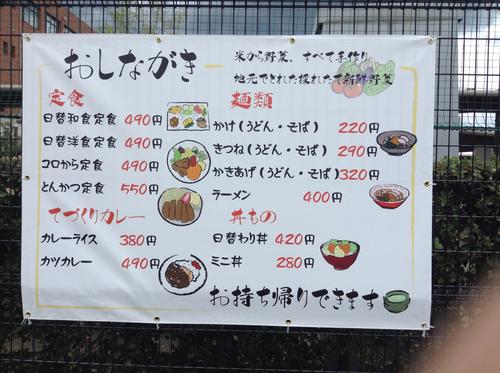 おしながき
米から野菜、すべて手作り
地元でとれた採れたて新鮮野菜
定食
日替和食定食 490円
日替洋食定食 490円
コロから定食 490円
とんかつ定食 550円
てづくりカレー
カレーライス 380円
カツカレー 490円
麺類
かけ(うどん・そば) 220円
きつね(うどん・そば) 290円
かきあげ(うどん・そば) 320円
ラーメン 400円
丼もの
日替わり丼 420円
ミニ丼 280円
お持ち帰りできます